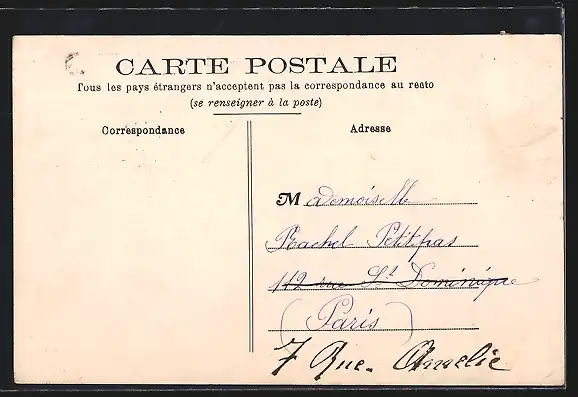 CARTE POSTALE
Tous les pays étrangers n'acceptent pas la correspondance au recto
(se renseigner à la poste)
Correspondance
Adresse
Mademoiselle
Rachel Petitpas
112 rue St Dominique
(Paris)
7 Rue. Amelie